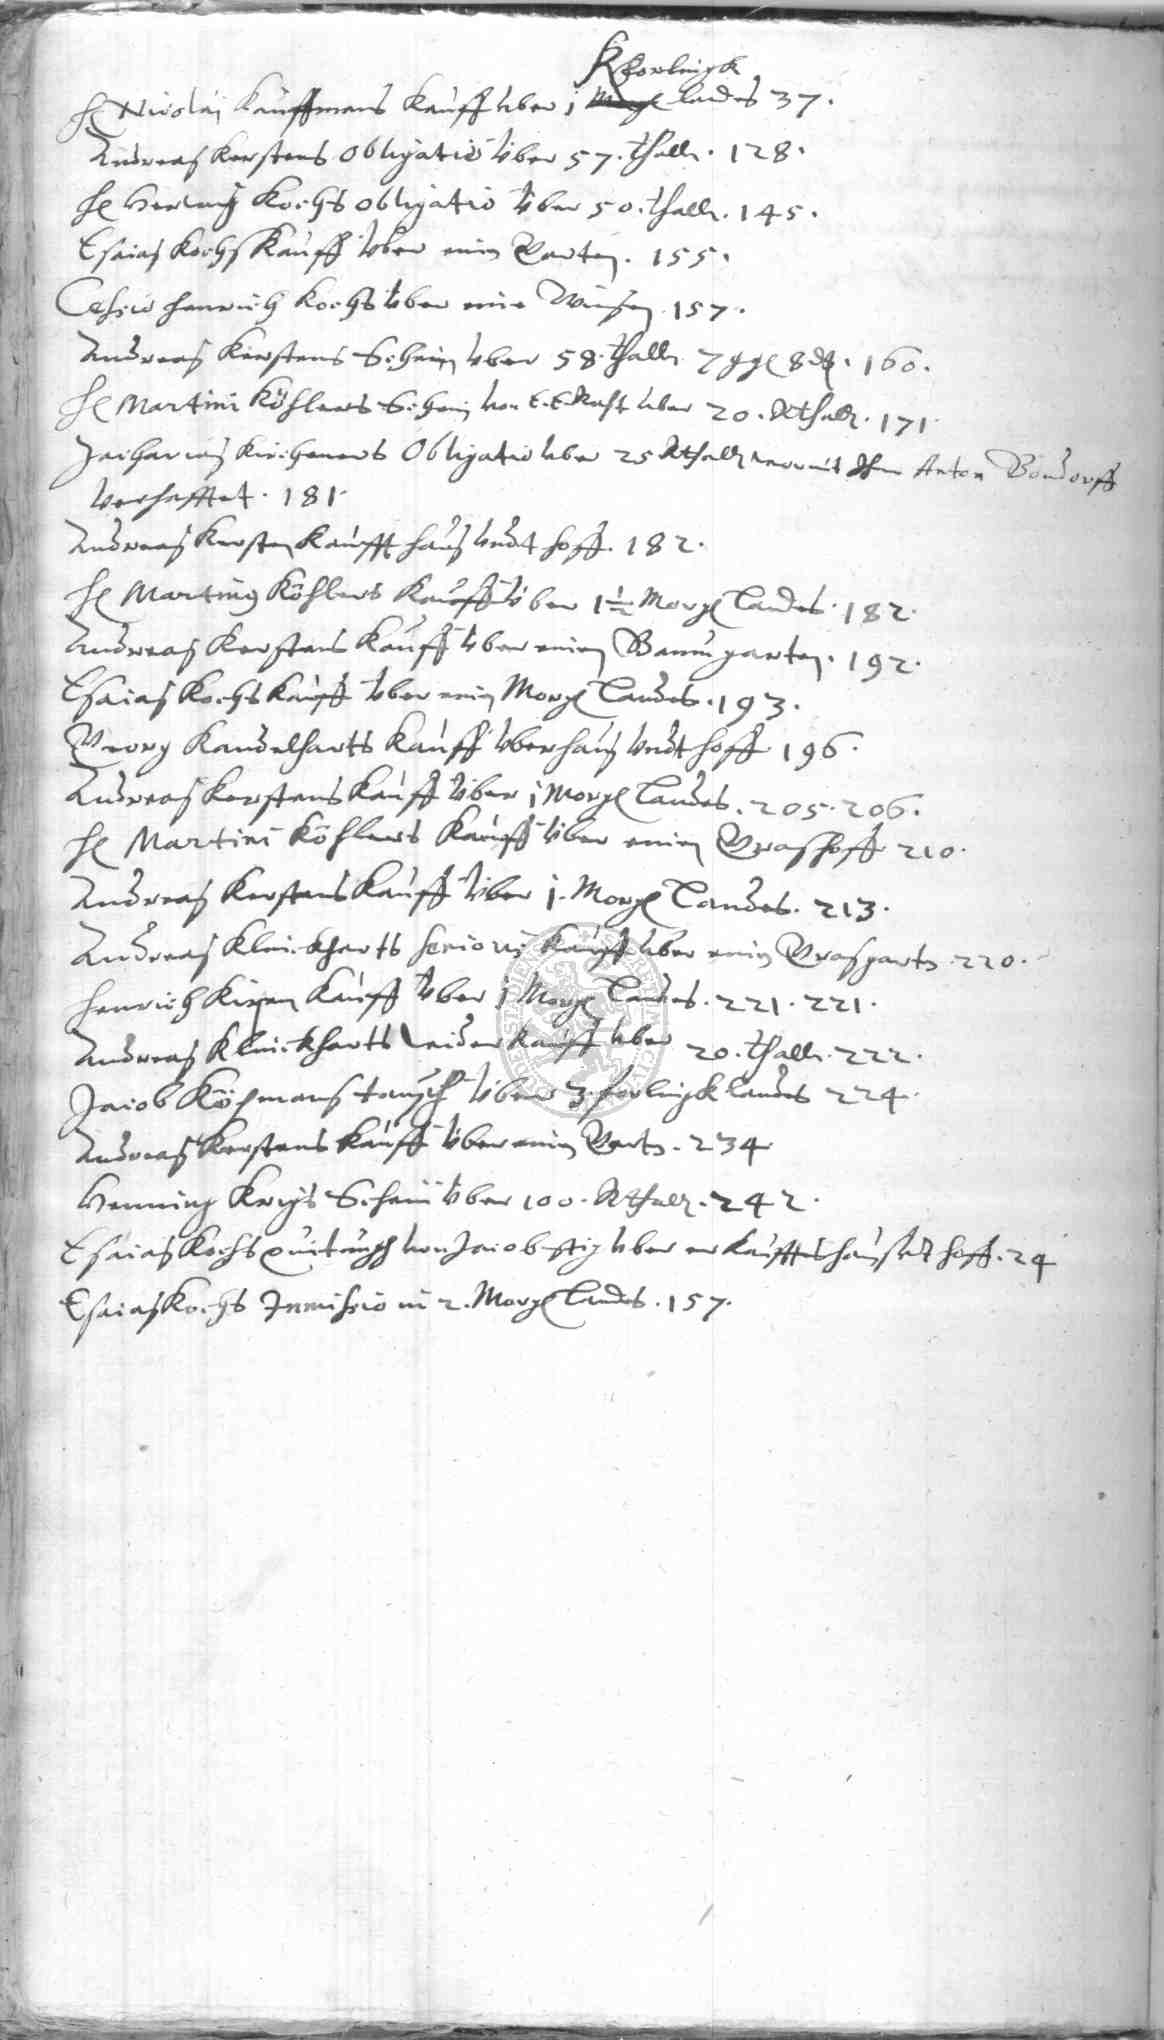 K
forlingk
H Nicolaj Kauffmans Kauff über j Morg landes 37.
Andreas Kerstens Obligatio über 57. thall. 128.
H Henning Kochs Obligatio über 50. thall. 145.
Esaias Kochs Kauff über einen Garten. 155.
Cessio Henrich Kochs über eine Wiesen. 157.
Andreas Kerstens Schein über 58. thall. 7 ggl 8 d. 160.
H Martini Köhlers Schein von E. E. Raht über 20. Rthall. 171.
Zacharias Kirchners Obligatio über 25 Rthall womit Ihm Anton Bondorff
verhafftet. 181.
Andreas Kersten Kaufft hauß undt hoff. 182.
H Martiny Köhlers Kauff über 1½ Morg Landes. 182.
Andreas Kerstens Kauff über einen Baumgarten. 192.
Esaias Kochs Kauff über einen Morg Landes. 193.
Georg Kandelharts Kauff über hauß undt hoff 196.
Andreas Kerstens Kauff über j Morg Landes. 205. 206.
H Martini Köhlers Kauff über einen Graßhoff 210.
Andreas Kerstens Kauff über j. Morg Landes. 213.
Andreas Kleinckharts senioris Kauff über einen Graßgarten 220.
Henrich Kauff über j Morg Landes. 221. 221.
Andreas Kleinckharts Kauff über 20. thall. 222.
Jacob tausch über 3. forlingk landes 224.
Andreas Kerstens Kauff über einen Garten. 234
Henning Schein über 100. Rthall. 242.
Esaias Kochs von Jacob über er haus hoff. 24
Esaias Kochs Immissio in 2. Morg Landes. 157.